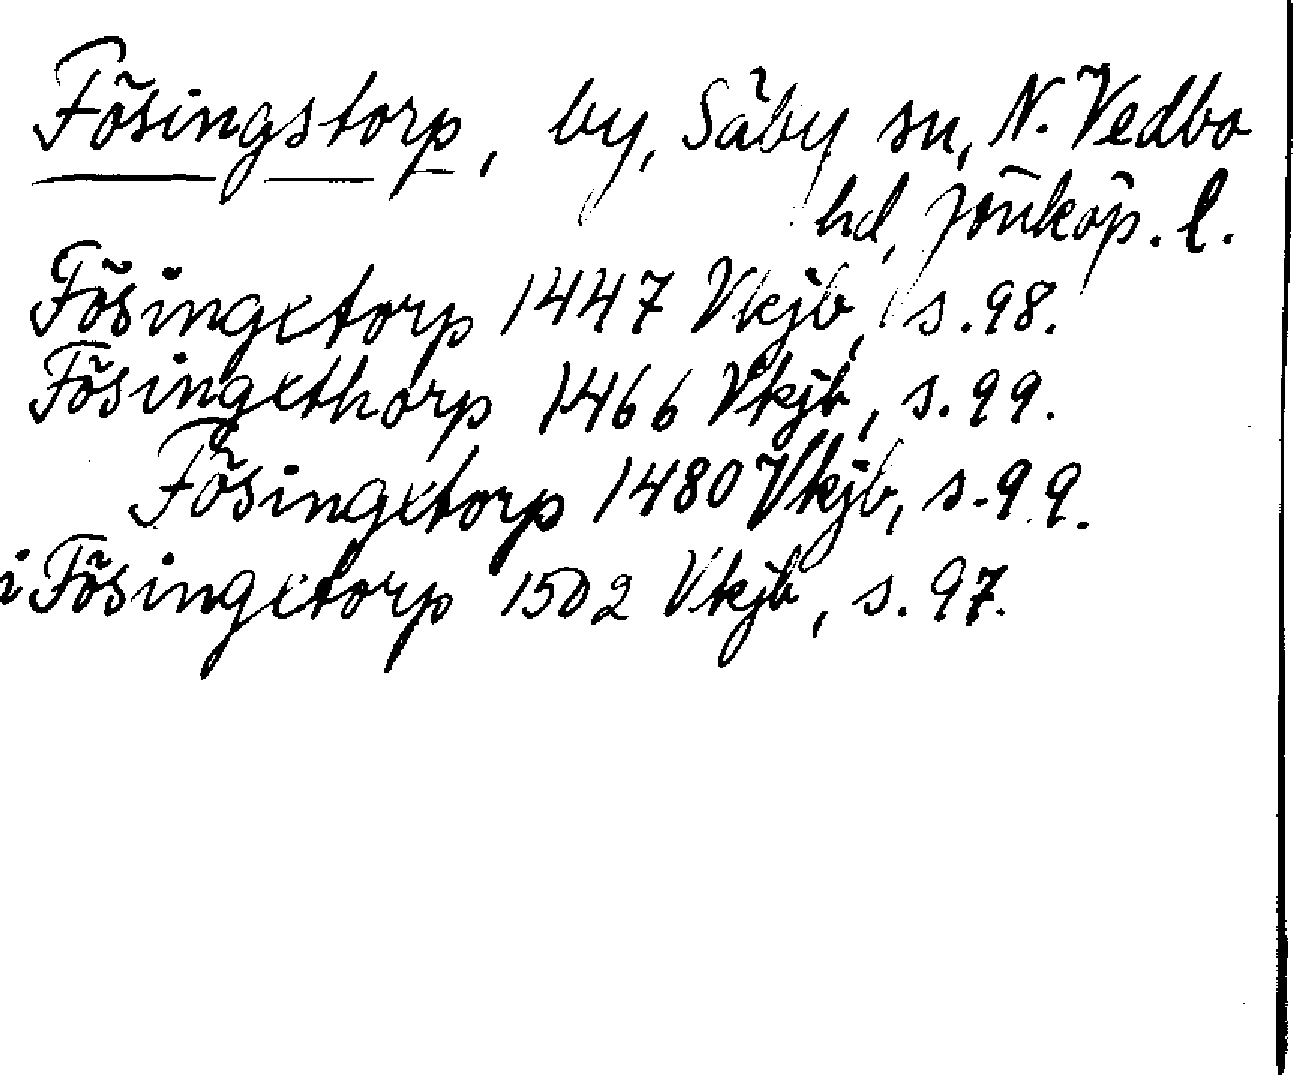 Fösingstorp, by, Säby sn, N. Vedbo
hd, Jönköp. l.
Fösingxtorp 1447 Vkjb, s. 98.
Fösingxthorp 1466 Vkjb, s. 99.
Fösingxtorp 1480 Vkjb, s. 99.
i Fösingxtorp 1502 Vkjb, s. 97.